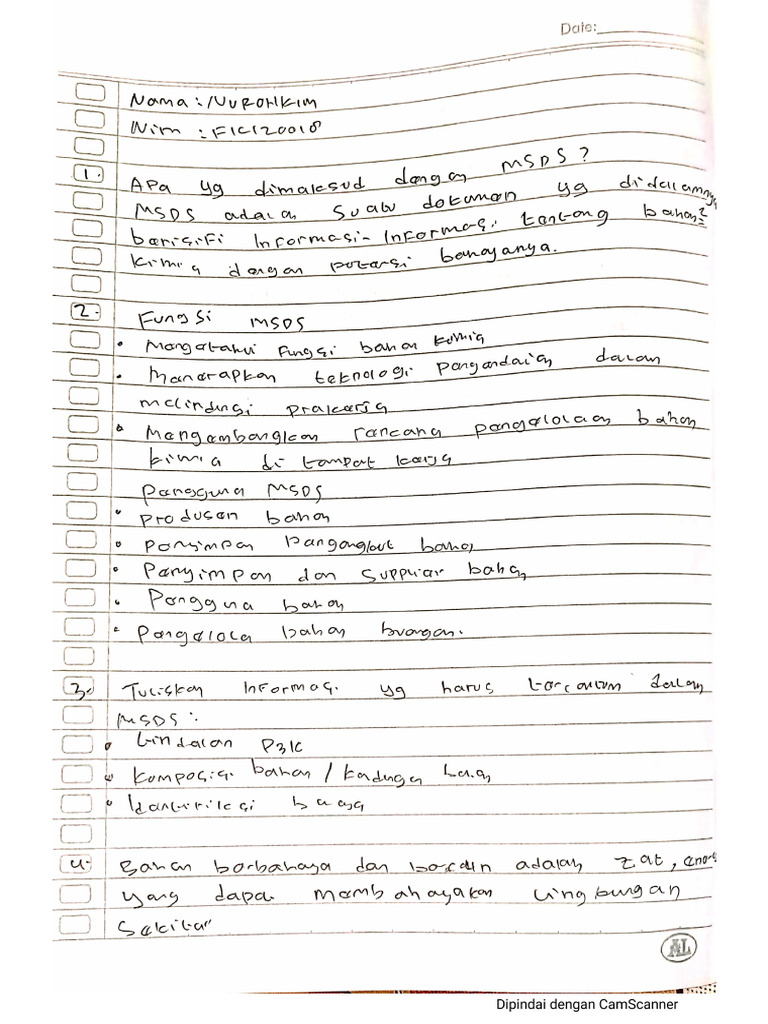 Date:
Nama : NUROHKIM
Nim : F1C120018
1. Apa yg dimaksud dengan MSDS?
MSDS adalah suatu dokumen yg didalamnya
berisifi Informasi-Informasi tentang bahan2
kimia dengan potensi bahayanya.
2. Fungsi MSDS
• Mengetahui fungsi bahan kimia
• Menerapkan teknologi pengendalian dalam
melindungi pekerja
• Mengembangkan rancang pengelolaan bahan
kimia di tempat kerja
Pengguna MSDS
• Produsen bahan
• Penyimpan pengangkut bahan
• Penyimpan dan supplier bahan
• Pengguna bahan
• Pengelola bahan buangan.
3. Tuliskan Informasi yg harus tercantum dalam
MSDS :
• tindakan P3K
• Komposisi bahan /
• Identifikasi bahaya
4. Bahan berbahaya dan beracun adalah zat,
yang dapat membahayakan lingkungan
sekitar
AL
Dipindai dengan CamScanner